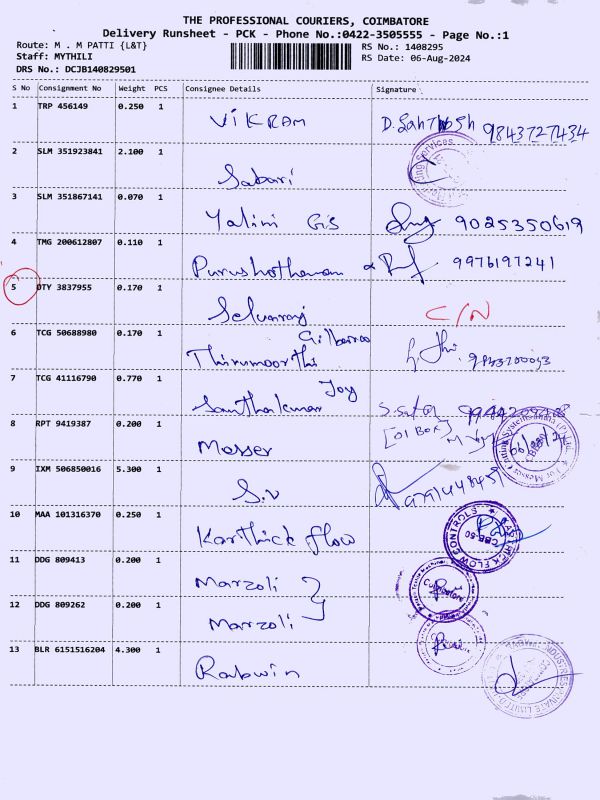 THE PROFESSIONAL COURIERS, COIMBATORE
Delivery Runsheet - PCK - Phone No.:0422-3505555 - Page No.:1
Route: M . M PATTI {L&T}
RS No.: 1408295
Staff: MYTHILI
RS Date: 06-Aug-2024
DRS No.: DCJB140829501
S No Consignment No Weight PCS Consignee Details Signature
1 TRP 456149 0.250 1 VIKRAM D. Santhosh 9843727434
2 SLM 351923841 2.100 1 Sabari
3 SLM 351867141 0.070 1 Yalini GS 9025350619
4 TMG 200612807 0.110 1 Purushothaman 9976197241
5 DTY 3837955 0.170 1 Selvanraj C/N
6 TCG 50688980 0.170 1 Thirumoorthi
7 TCG 41116790 0.770 1 Santhakumar Joy
8 RPT 9419387 0.200 1 Messer [01 Box]
9 IXM 506850016 5.300 1 S.V
10 MAA 101316370 0.250 1 Karthick flow
FLOW CONTROLS
CBE-50
11 DDG 809413 0.200 1 Marzoli
Coimbatore
12 DDG 809262 0.200 1 Marzoli
13 BLR 6151516204 4.300 1 Rabwin